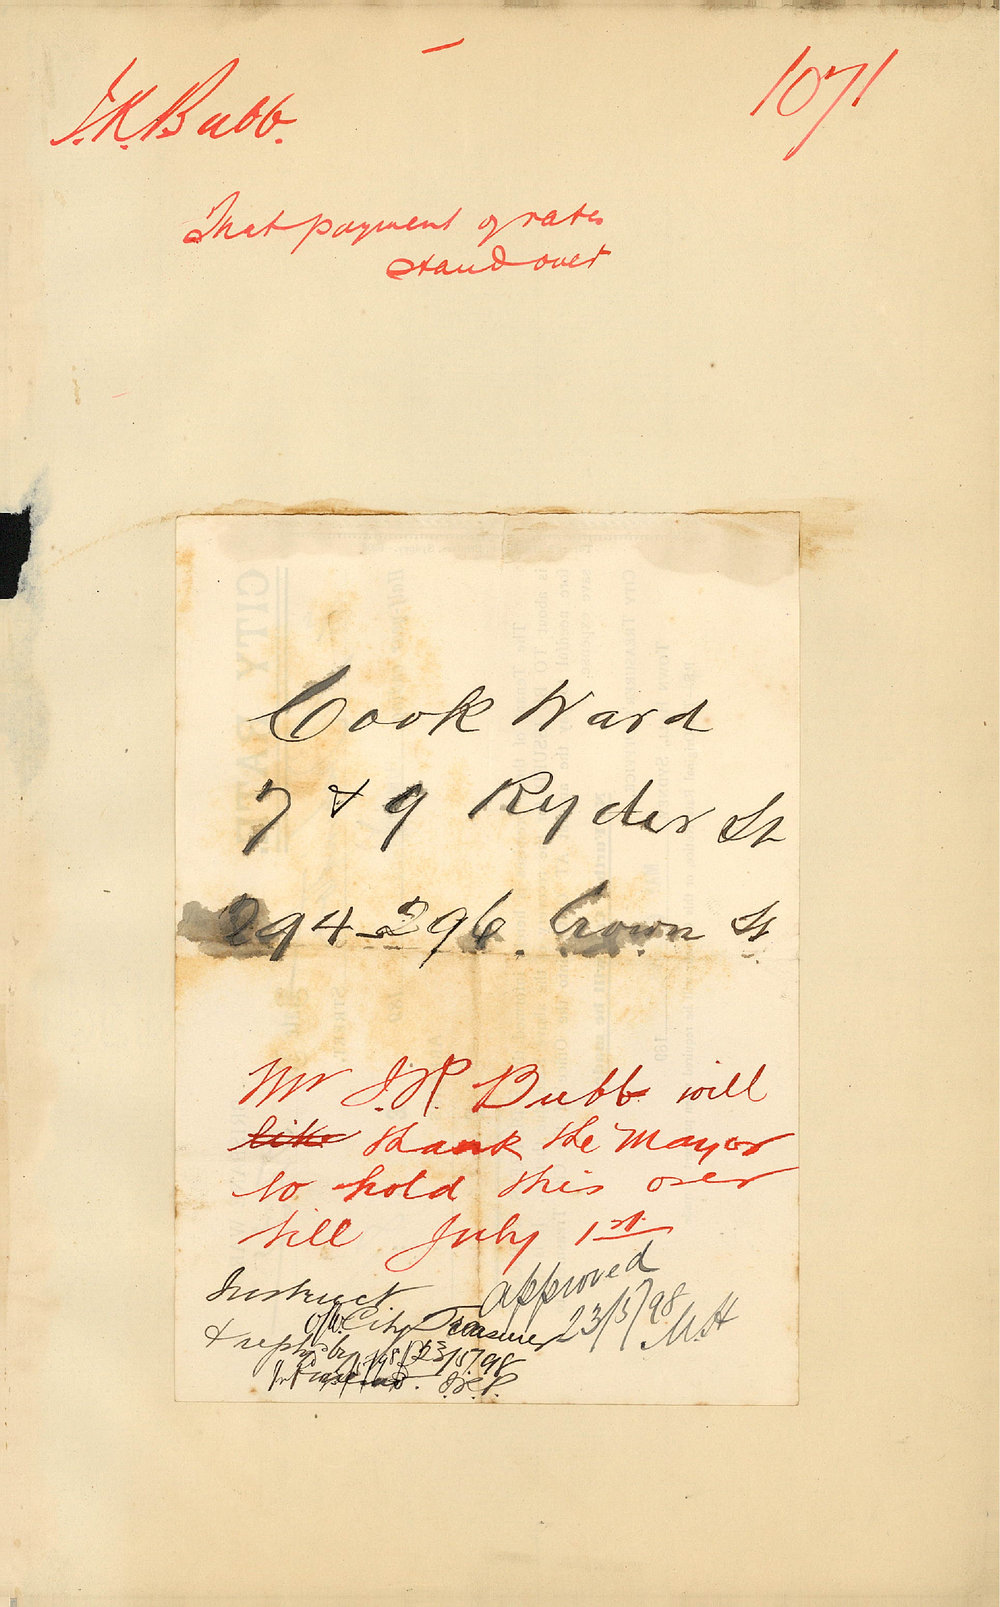 J.R. Bubb.
1071
That payment of rates
stand over
Cook Ward
7 & 9 Ryder St
294_296. Crown St
Mr J.R. Bubb will
like thank the Mayor
to hold this over
till July 1st
Approved
23/5/98
MH
Instruct
City Treasurer
& reply
23/5/98